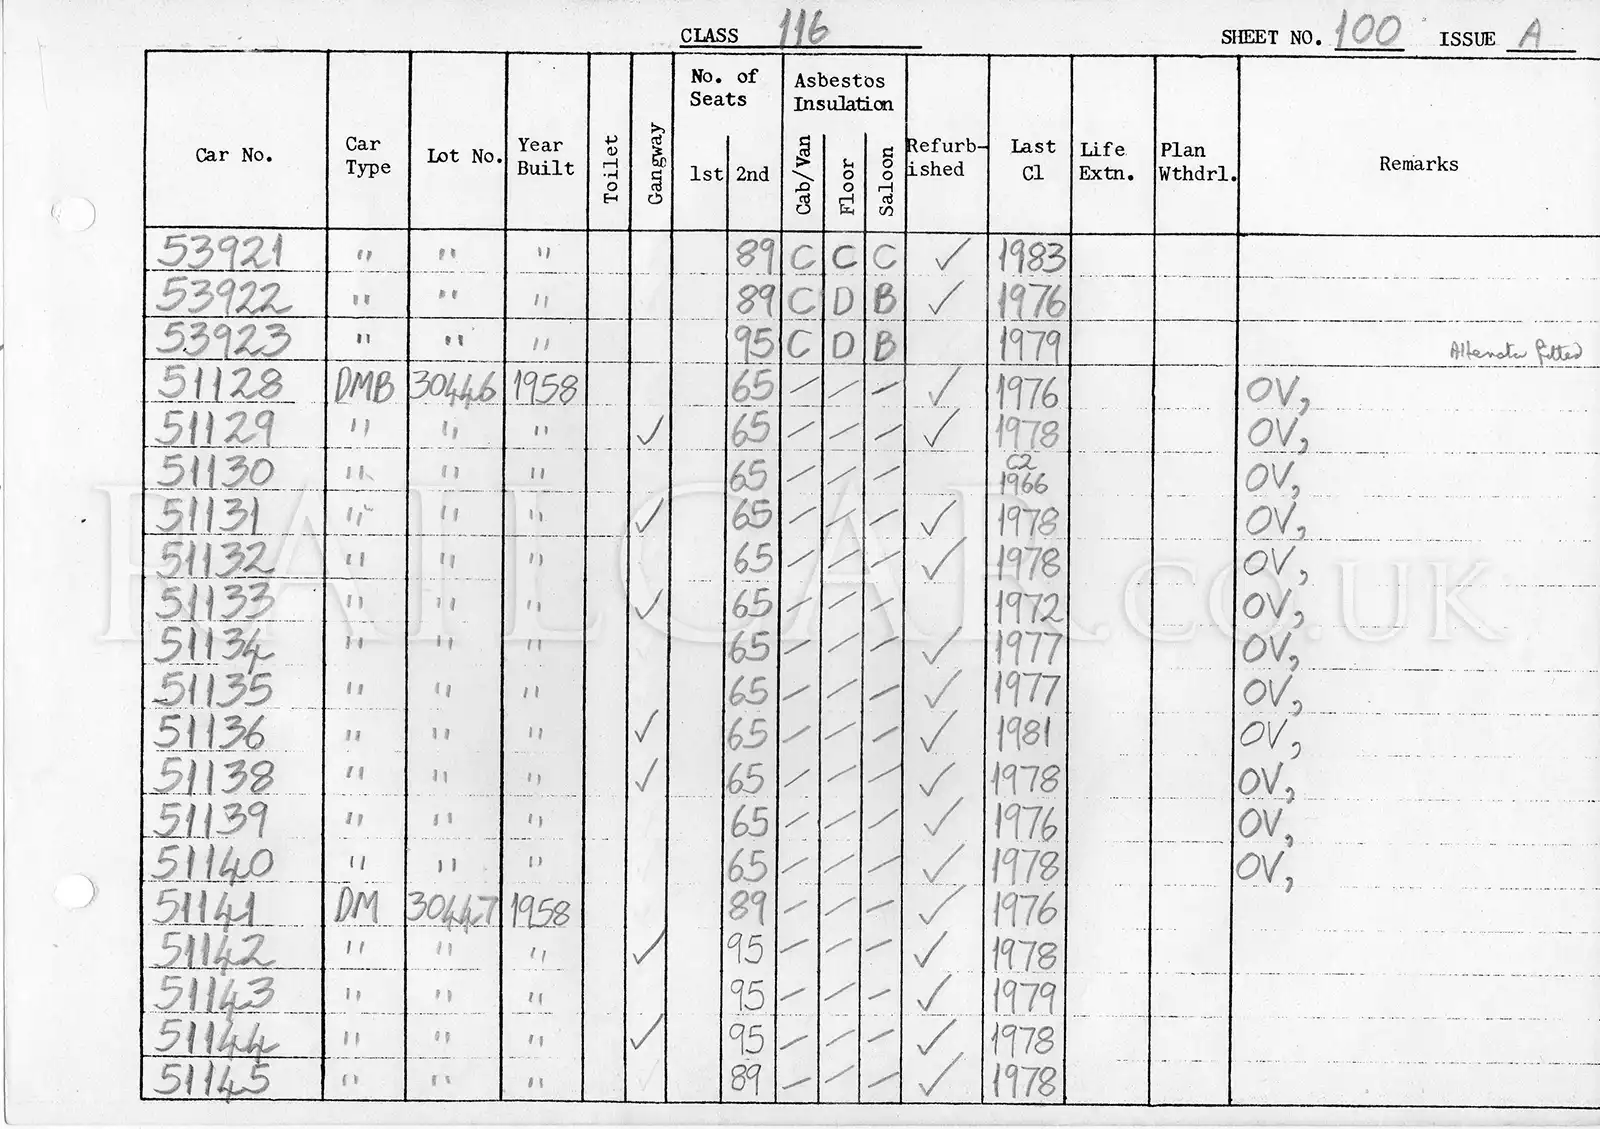 CLASS 116 SHEET NO. 100 ISSUE A
Car No. Car Type Lot No. Year Built Toilet Gangway No. of Seats 1st 2nd Asbestos Insulation Cab/Van Floor Saloon Refurb-ished Last Cl Life Extn. Plan Wthdrl. Remarks
53921 " " " 89 C C C ✓ 1983
53922 " " " 89 C D B ✓ 1976
53923 " " " 95 C D B 1979 Alternator fitted
51128 DMB 30446 1958 65 / / / ✓ 1976 OV,
51129 " " " ✓ 65 / / / ✓ 1978 OV,
51130 " " " 65 / / / C2 1966 OV,
51131 " " " ✓ 65 / / / ✓ 1978 OV,
51132 " " " 65 / / / ✓ 1978 OV,
51133 " " " ✓ 65 / / / 1972 OV,
51134 " " " 65 / / / ✓ 1977 OV,
51135 " " " 65 / / / ✓ 1977 OV,
51136 " " " ✓ 65 / / / ✓ 1981 OV,
51138 " " " ✓ 65 / / / ✓ 1978 OV,
51139 " " " 65 / / / ✓ 1976 OV,
51140 " " " 65 / / / ✓ 1978 OV,
51141 DM 30447 1958 89 / / / ✓ 1976
51142 " " " ✓ 95 / / / ✓ 1978
51143 " " " 95 / / / ✓ 1979
51144 " " " ✓ 95 / / / ✓ 1978
51145 " " " 89 / / / ✓ 1978
RAILCAR.CO.UK